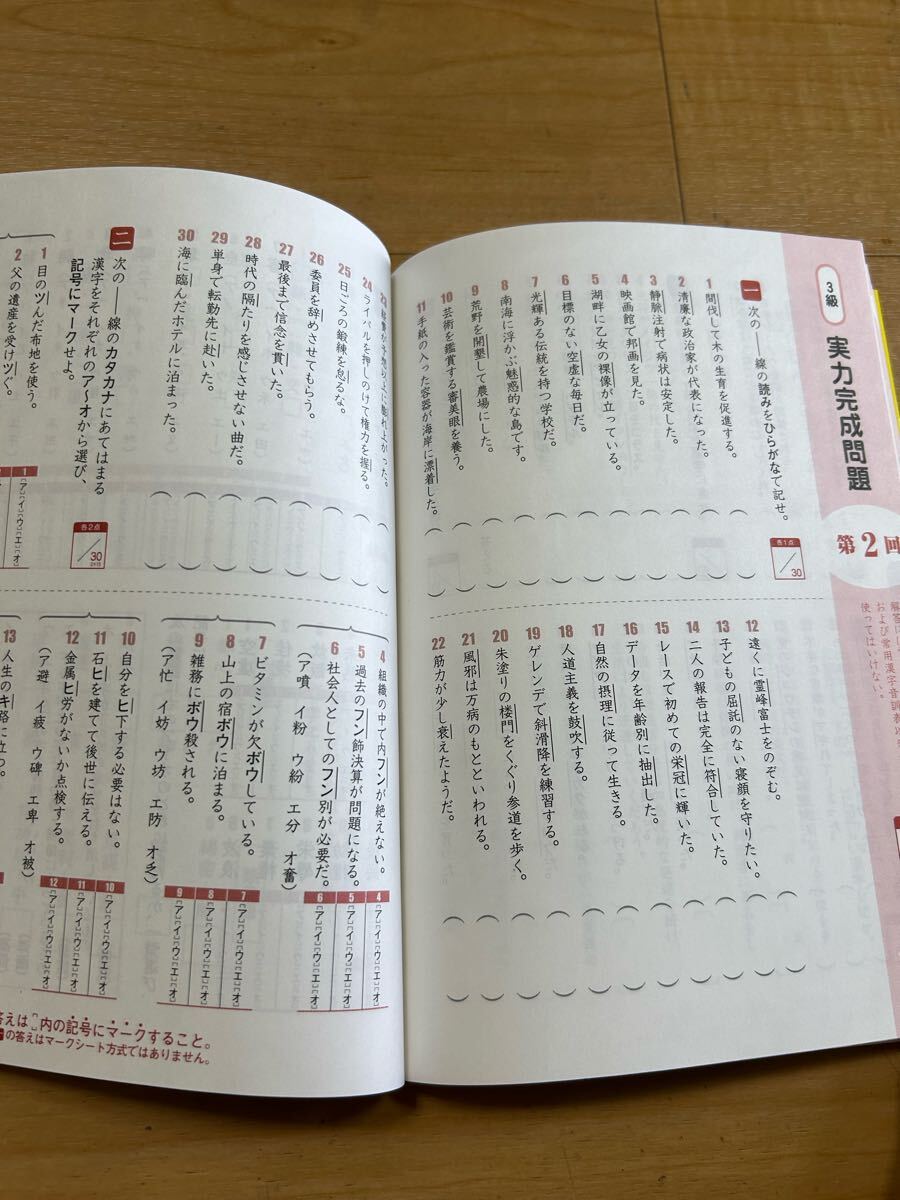 3級
実力完成問題
第2回
および常用漢字音訓表
使ってはいけない。
一 次の――線の読みをひらがなで記せ。
各1点
／30
1 間伐して木の生育を促進する。
2 清廉な政治家が代表になった。
3 静脈注射で病状は安定した。
4 映画館で邦画を見た。
5 湖畔に乙女の裸像が立っている。
6 目標のない空虚な毎日だ。
7 光輝ある伝統を持つ学校だ。
8 南海に浮かぶ魅惑的な島です。
9 荒野を開墾して農場にした。
10 芸術を鑑賞する審美眼を養う。
11 手紙の入った容器が海岸に漂着した。
12 遠くに霊峰富士をのぞむ。
13 子どもの屈託のない寝顔を守りたい。
14 二人の報告は完全に符合していた。
15 レースで初めての栄冠に輝いた。
16 データを年齢別に抽出した。
17 自然の摂理に従って生きる。
18 人道主義を鼓吹する。
19 ゲレンデで斜滑降を練習する。
20 朱塗りの楼門をくぐり参道を歩く。
21 風邪は万病のもとといわれる。
22 筋力が少し衰えたようだ。
23
上に膨れ上がった。
24 ライバルを押しのけて権力を握る。
25 日ごろの鍛練を怠るな。
26 委員を辞めさせてもらう。
27 最後まで信念を貫いた。
28 時代の隔たりを感じさせない曲だ。
29 単身で転勤先に赴いた。
30 海に臨んだホテルに泊まった。
二 次の――線のカタカナにあてはまる
漢字をそれぞれのア～オから選び、
記号にマークせよ。
各2点
／30
2×15
1 目のツんだ布地を使う。
2 父の遺産を受けツぐ。
1 [ア][イ][ウ][エ][オ]
4 組織の中で内フンが絶えない。
5 過去のフン飾決算が問題になる。
6 社会人としてのフン別が必要だ。
（ア噴 イ粉 ウ紛 エ分 オ奮）
4 [ア][イ][ウ][エ][オ]
5 [ア][イ][ウ][エ][オ]
6 [ア][イ][ウ][エ][オ]
7 ビタミンが欠ボウしている。
8 山上の宿ボウに泊まる。
9 雑務にボウ殺される。
（ア忙 イ妨 ウ坊 エ防 オ乏）
7 [ア][イ][ウ][エ][オ]
8 [ア][イ][ウ][エ][オ]
9 [ア][イ][ウ][エ][オ]
10 自分をヒ下する必要はない。
11 石ヒを建てて後世に伝える。
12 金属ヒ労がないか点検する。
（ア避 イ疲 ウ碑 エ卑 オ被）
10 [ア][イ][ウ][エ][オ]
11 [ア][イ][ウ][エ][オ]
12 [ア][イ][ウ][エ][オ]
13 人生のキ路に立つ。
答えは[ ]内の記号にマークすること。
一の答えはマークシート方式ではありません。